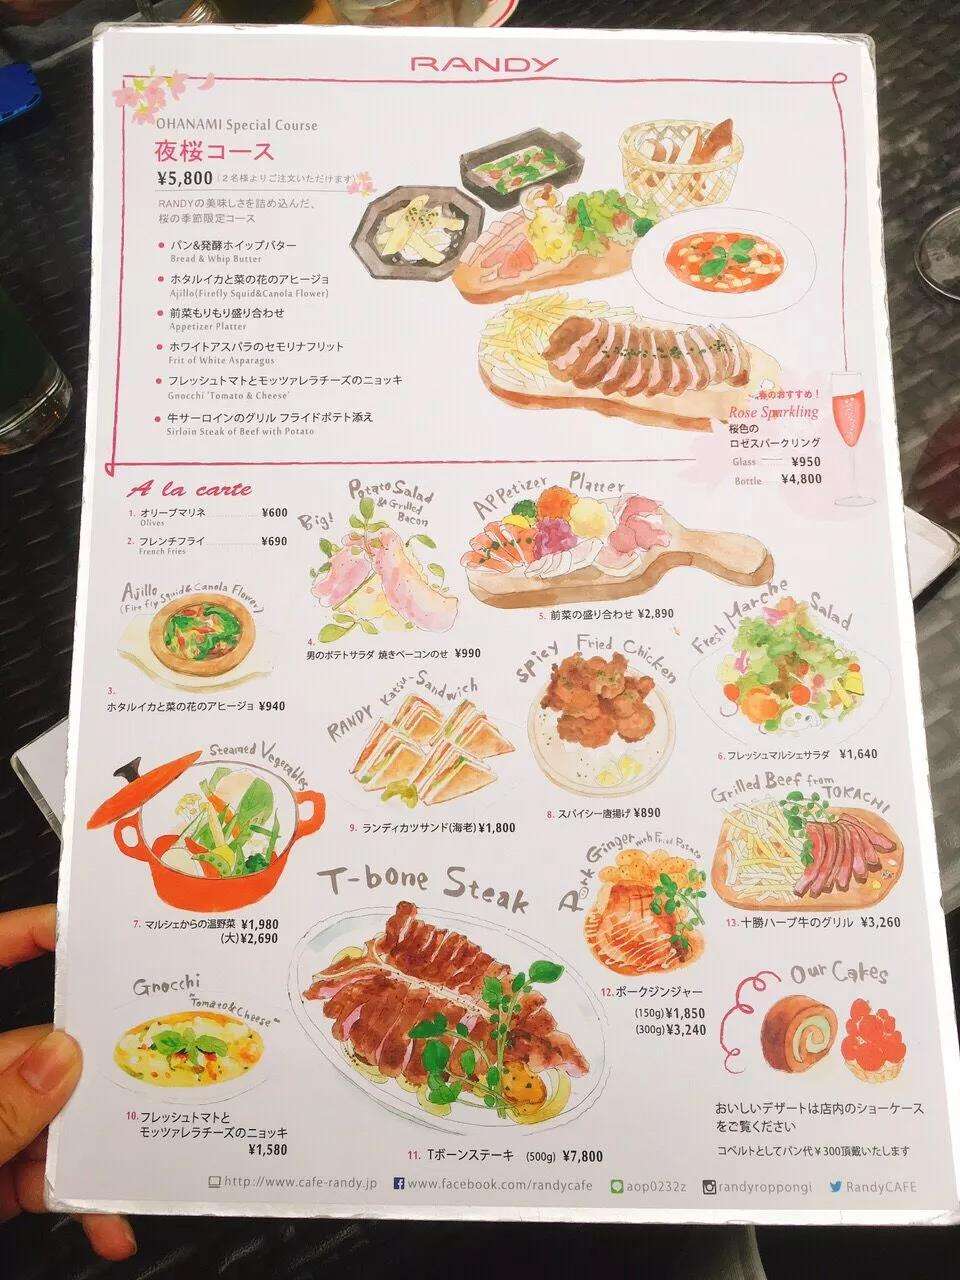 RANDY
OHANAMI Special Course
夜桜コース
¥5,800 (2名様よりご注文いただけます)
RANDYの美味しさを詰め込んだ、
桜の季節限定コース
• パン&発酵ホイップバター
Bread & Whip Butter
• ホタルイカと菜の花のアヒージョ
Ajillo(Firefly Squid&Canola Flower)
• 前菜もりもり盛り合わせ
Appetizer Platter
• ホワイトアスパラのセモリナフリット
Frit of White Asparagus
• フレッシュトマトとモッツァレラチーズのニョッキ
Gnocchi 'Tomato & Cheese'
• 牛サーロインのグリル フライドポテト添え
Sirloin Steak of Beef with Potato
春のおすすめ！
Rose Sparkling
桜色の
ロゼスパークリング
Glass ¥950
Bottle ¥4,800
A la carte
1. オリーブマリネ ¥600
Olives
2. フレンチフライ ¥690
French Fries
Ajillo
(Fire fly Squid & Canola Flower)
3.
ホタルイカと菜の花のアヒージョ ¥940
Big!
Potato Salad
& Grilled
Bacon
4.
男のポテトサラダ 焼きベーコンのせ ¥990
Appetizer Platter
5. 前菜の盛り合わせ ¥2,890
Fresh Marche Salad
6. フレッシュマルシェサラダ ¥1,640
Steamed Vegetables
7. マルシェからの温野菜 ¥1,980
(大)¥2,690
Spicy Fried Chicken
8. スパイシー唐揚げ ¥890
RANDY Katsu-Sandwich
9. ランディカツサンド(海老) ¥1,800
Gnocchi
"Tomato&Cheese"
10. フレッシュトマトと
モッツァレラチーズのニョッキ
¥1,580
T-bone Steak
11. Tボーンステーキ (500g) ¥7,800
Pork Ginger with Fried Potato
12. ポークジンジャー
(150g) ¥1,850
(300g) ¥3,240
Grilled Beef from
TOKACHI
13. 十勝ハーブ牛のグリル ¥3,260
Our Cakes
おいしいデザートは店内のショーケース
をご覧ください
コペルトとしてパン代￥300頂戴いたします
http://www.cafe-randy.jp www.facebook.com/randycafe aop0232z randyroppongi RandyCAFE